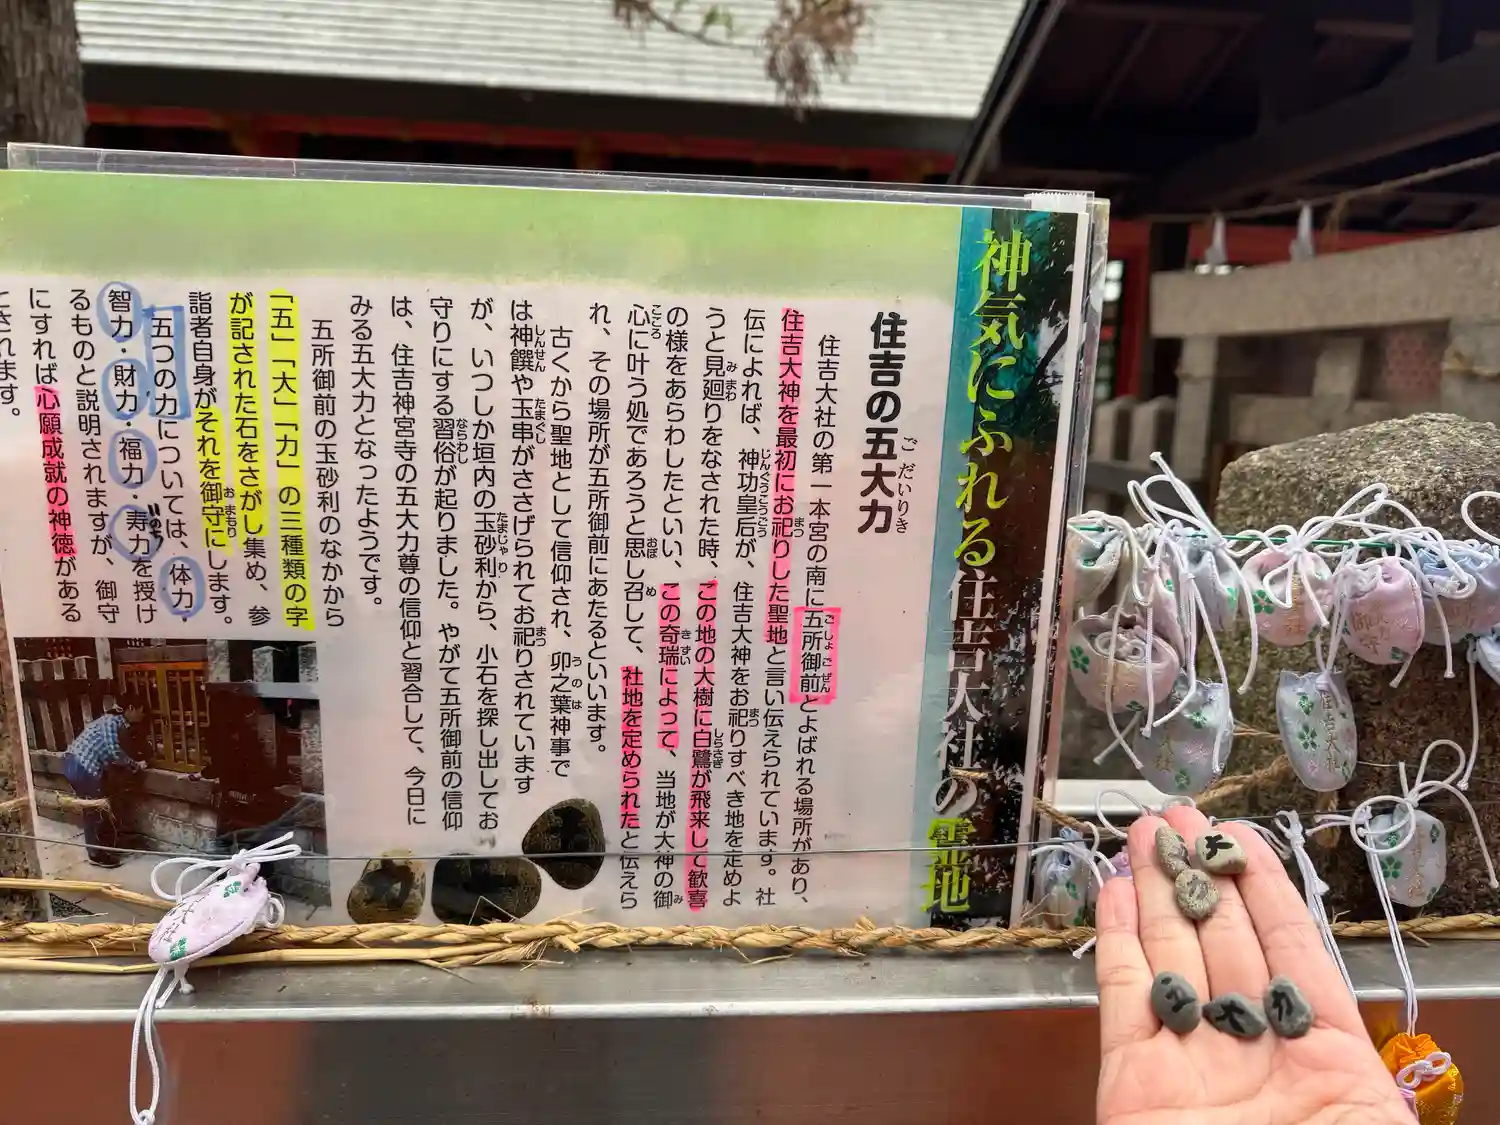 神気にふれる住吉大社の霊地
住吉の五大力
ごだいりき
住吉大社の第一本宮の南に五所御前とよばれる場所があり、
ごしょごぜん
住吉大神を最初にお祀りした聖地と言い伝えられています。社
まつ
伝によれば、神功皇后が、住吉大神をお祀りすべき地を定めよ
じんぐうこうごう
まつ
うと見廻りをなされた時、この地の大樹に白鷺が飛来して歓喜
みまわ
しらさぎ
の様をあらわしたといい、この奇瑞によって、当地が大神の御
きずい
み
心に叶う処であろうと思し召して、社地を定められたと伝えら
こころ
おぼ
め
れ、その場所が五所御前にあたるといいます。
古くから聖地として信仰され、卯之葉神事で
うのは
は神饌や玉串がささげられてお祀りされています
しんせん
たまぐし
まつ
が、いつしか垣内の玉砂利から、小石を探し出してお
たまじゃり
守りにする習俗が起りました。やがて五所御前の信仰
ならわし
は、住吉神宮寺の五大力尊の信仰と習合して、今日に
みる五大力となったようです。
五所御前の玉砂利のなかから
「五」「大」「力」の三種類の字
が記された石をさがし集め、参
詣者自身がそれを御守にします。
おまもり
五つの力については、体力・
智力・財力・福力・寿力を授け
いのち
るものと説明されますが、御守
にすれば心願成就の神徳がある
とされます。
五
大
力
大
力